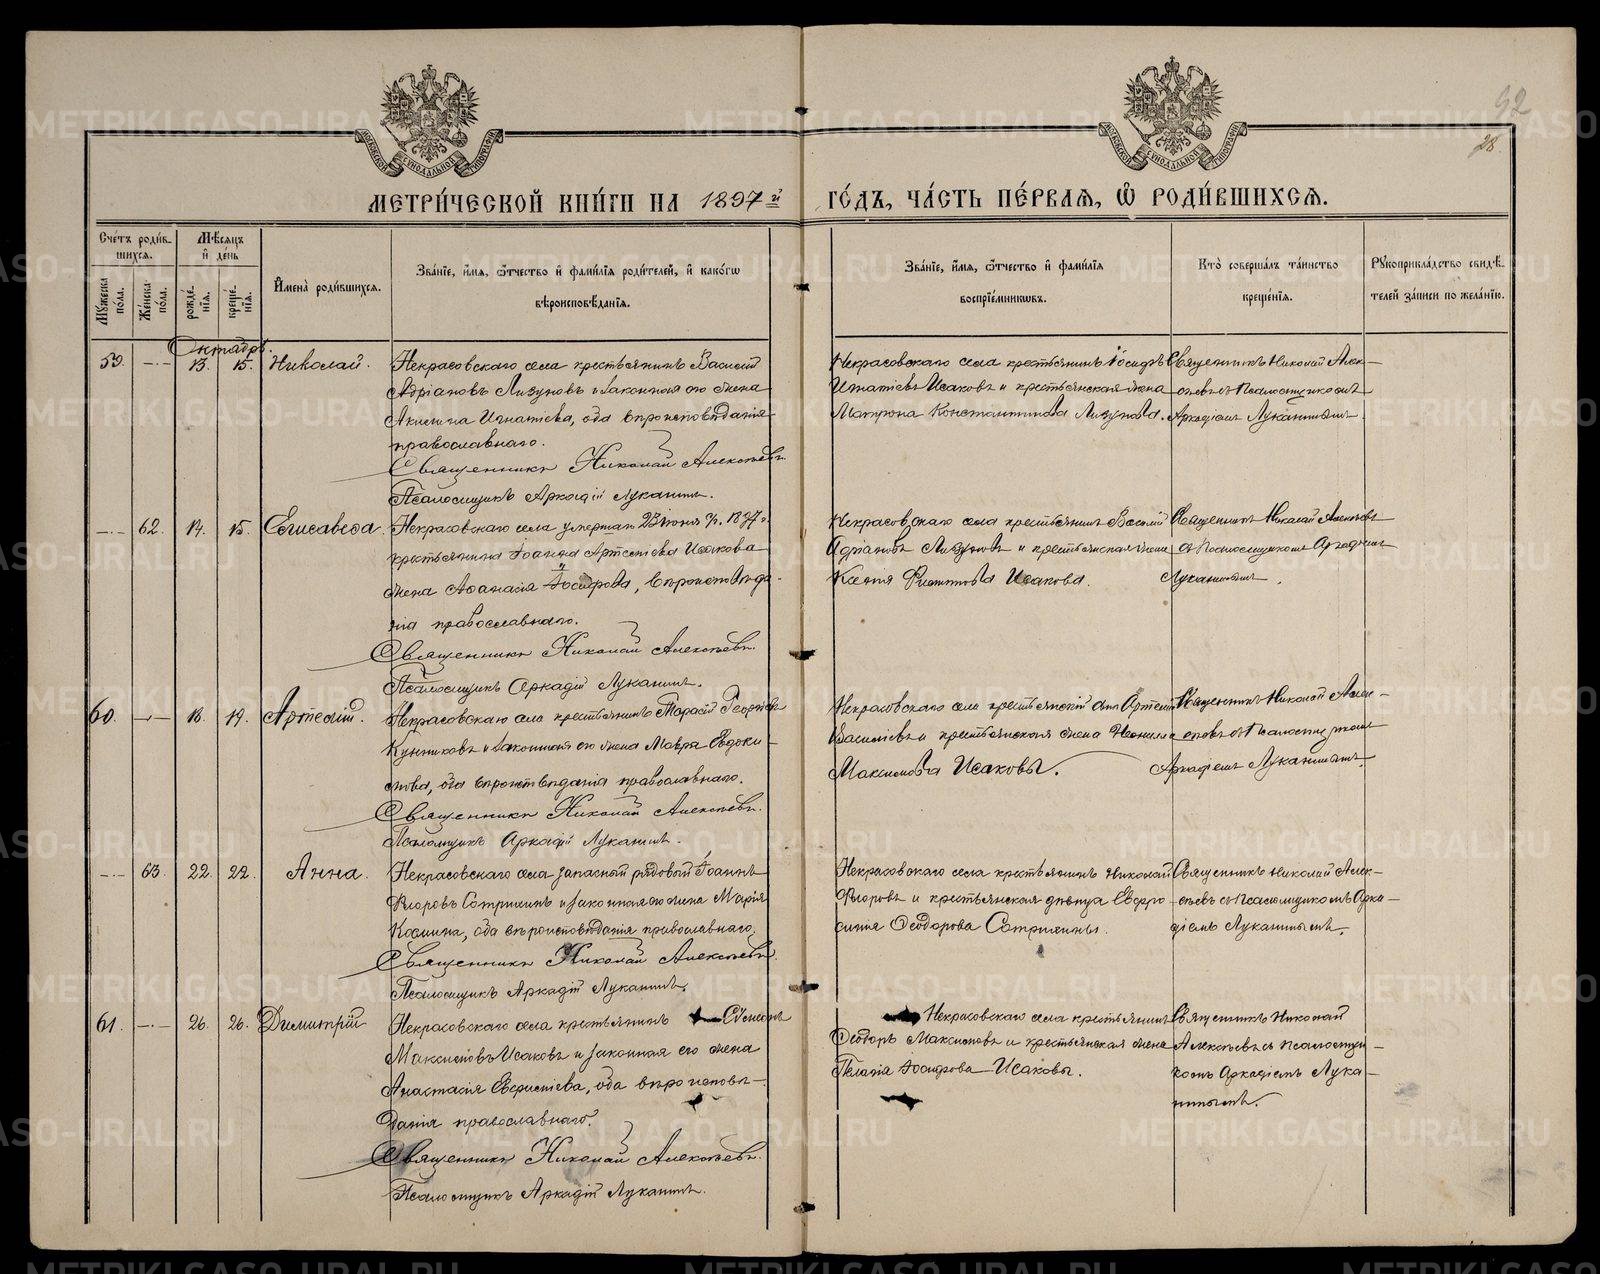 92
28.
МОСКОВСКОЙ СѴНОДАЛЬНОЙ ТИПОГРАФІИ
МОСКОВСКОЙ СѴНОДАЛЬНОЙ ТИПОГРАФІИ
МЕТРИ́ЧЕСКОЙ КНИ́ГИ НА 1897й ГО́ДЪ, ЧА́СТЬ ПЕ́РВАѦ, Ѽ РОДИ́ВШИХСѦ.
Сче́тъ роди́в-
шихсѧ.
Мꙋ́жеска
по́ла.
Же́нска
по́ла.
Мѣ́сѧцъ
и҆ де́нь
рожде́-
нїѧ.
креще́-
нїѧ.
И҆мена̀ роди́вшихсѧ.
Зва́нїе, и҆́мѧ, ѻ҆́тчество и҆ фами́лїѧ роди́телей, и҆ како́гѡ
вѣроисповѣ́данїѧ.
Зва́нїе, и҆́мѧ, ѻ҆́тчество и҆ фами́лїѧ
воспрїе́мникѡвъ.
Кто̀ соверша́лъ та́инство
креще́нїѧ.
Рꙋкоприкла́дство свидѣ́-
телей за́писи по жела́нїю.
Октябрь.
59. —·— 13. 15. Николай.
Некрасовскаго села крестьянинъ Василій
Адріановъ Лизуновъ и законная его жена
Акилина Игнатіева, оба вѣроисповѣданія
православнаго.
Священникъ Николай Алексѣевъ.
Псаломщикъ Аркадій Луканинъ.
Некрасовскаго села крестьянинъ Іосифъ
Игнатіевъ Исаковъ и крестьянская жена
Матрона Константинова Лизунова.
Священникъ Николай Алек-
сѣевъ съ Псаломщикомъ
Аркадіемъ Луканинымъ.
—·— 62. 14. 15. Елисавета.
Некрасовскаго села умершаго 23 іюня с/г. 1897 г.
крестьянина Іоанна Артеміева Исакова
жена Аѳанасія Іосифова, вѣроисповѣда-
нія православнаго.
Священникъ Николай Алексѣевъ.
Псаломщикъ Аркадій Луканинъ.
Некрасовскаго села крестьянинъ Василій
Адріановъ Лизуновъ и крестьянская жена
Ксенія Исакова.
Священникъ Николай Алексѣевъ
съ Псаломщикомъ Аркадіемъ
Луканинымъ.
60. —·— 18. 19. Артемій.
Некрасовскаго села крестьянинъ Тарасій Георгіевъ
и законная его жена Мавра Евдоки-
мова, оба вѣроисповѣданія православнаго.
Священникъ Николай Алексѣевъ.
Псаломщикъ Аркадій Луканинъ.
Некрасовскаго села крестьянскій сынъ Артемій
Василіевъ и крестьянская жена Неонила
Максимова Исаковы.
Священникъ Николай Алек-
сѣевъ съ Псаломщикомъ
Аркадіемъ Луканинымъ.
—·— 63. 22. 22. Анна.
Некрасовскаго села запасный рядовый Іоаннъ
Флоровъ и законная его жена Марія
Космина, оба вѣроисповѣданія православнаго.
Священникъ Николай Алексѣевъ.
Псаломщикъ Аркадій Луканинъ.
Некрасовскаго села крестьянинъ Николай
Флоровъ и крестьянская дѣвица Евфро-
синія Ѳеодорова
Священникъ Николай Алек-
сѣевъ съ Псаломщикомъ Арка-
діемъ Луканинымъ.
61. —·— 26. 26. Димитрій
Некрасовскаго села крестьянинъ Сѵмеонъ
Максимовъ Исаковъ и законная его жена
Анастасія оба вѣроисповѣ-
данія православнаго.
Священникъ Николай Алексѣевъ.
Псаломщикъ Аркадій Луканинъ.
Некрасовскаго села крестьянинъ
Ѳеодоръ Максимовъ и крестьянская жена
Пелагія Іосифова Исаковы.
Священникъ Николай
Алексѣевъ съ Псаломщи-
комъ Аркадіемъ Лука-
нинымъ.
METRIKI.GASO-URAL.RU